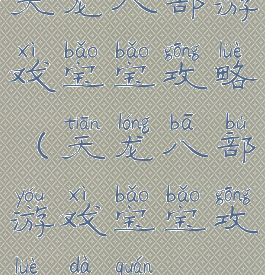 天龙八部游
xì bǎo bǎo gōng lüè
戏宝宝攻略
tiān lóng bā bù
（天龙八部
yóu xì bǎo bǎo gōng
游戏宝宝攻
lüè dà quán